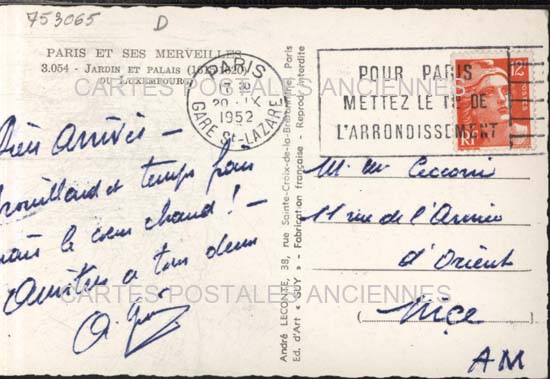 753065 D
PARIS ET SES MERVEILLES
3.054 - JARDIN ET PALAIS (1615-1620)
DU LUXEMBOURG
PARIS
20 IX
1952
GARE St-LAZARE
POUR PARIS
METTEZ LE N° DE
L'ARRONDISSEMENT
12F
POSTES
RF
CARTES POSTALES ANCIENNES
Bien arrivés -
Brouillard et temps frais
mais le cœur chaud ! -
Amitiés à tous deux
André LECONTE, 38, rue Sainte-Croix-de-la-Bretonnerie, Paris
Ed. d'Art « GUY » - Fabrication française - Reprod. interdite
M. Mme Cecconi
11 rue de l'Armée
d'Orient
Nice
( )
AM
CARTES POSTALES ANCIENNES